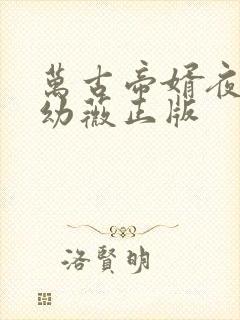 萬古帝婿夜
幼薇正版
洛賢明